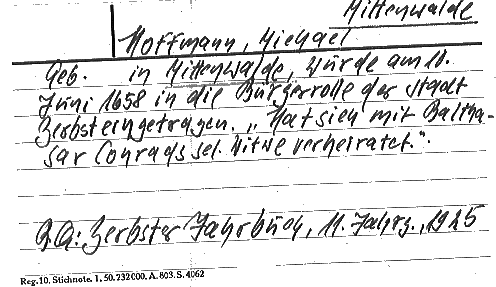 Mittenwalde
Hoffmann, Michael
Geb. in Mittenwalde, wurde am 18.
Juni 1658 in die Bürgerrolle der Stadt
Zerbst eingetragen. „Hat sich mit Baltha-
sar Conrads sel. Witwe verheiratet.“.
Q.A: Zerbster Jahrbuch, 11. Jahrg., 1925
Reg. 10. Stichnote. 1, 50. 232000. A. 803. S. 4062